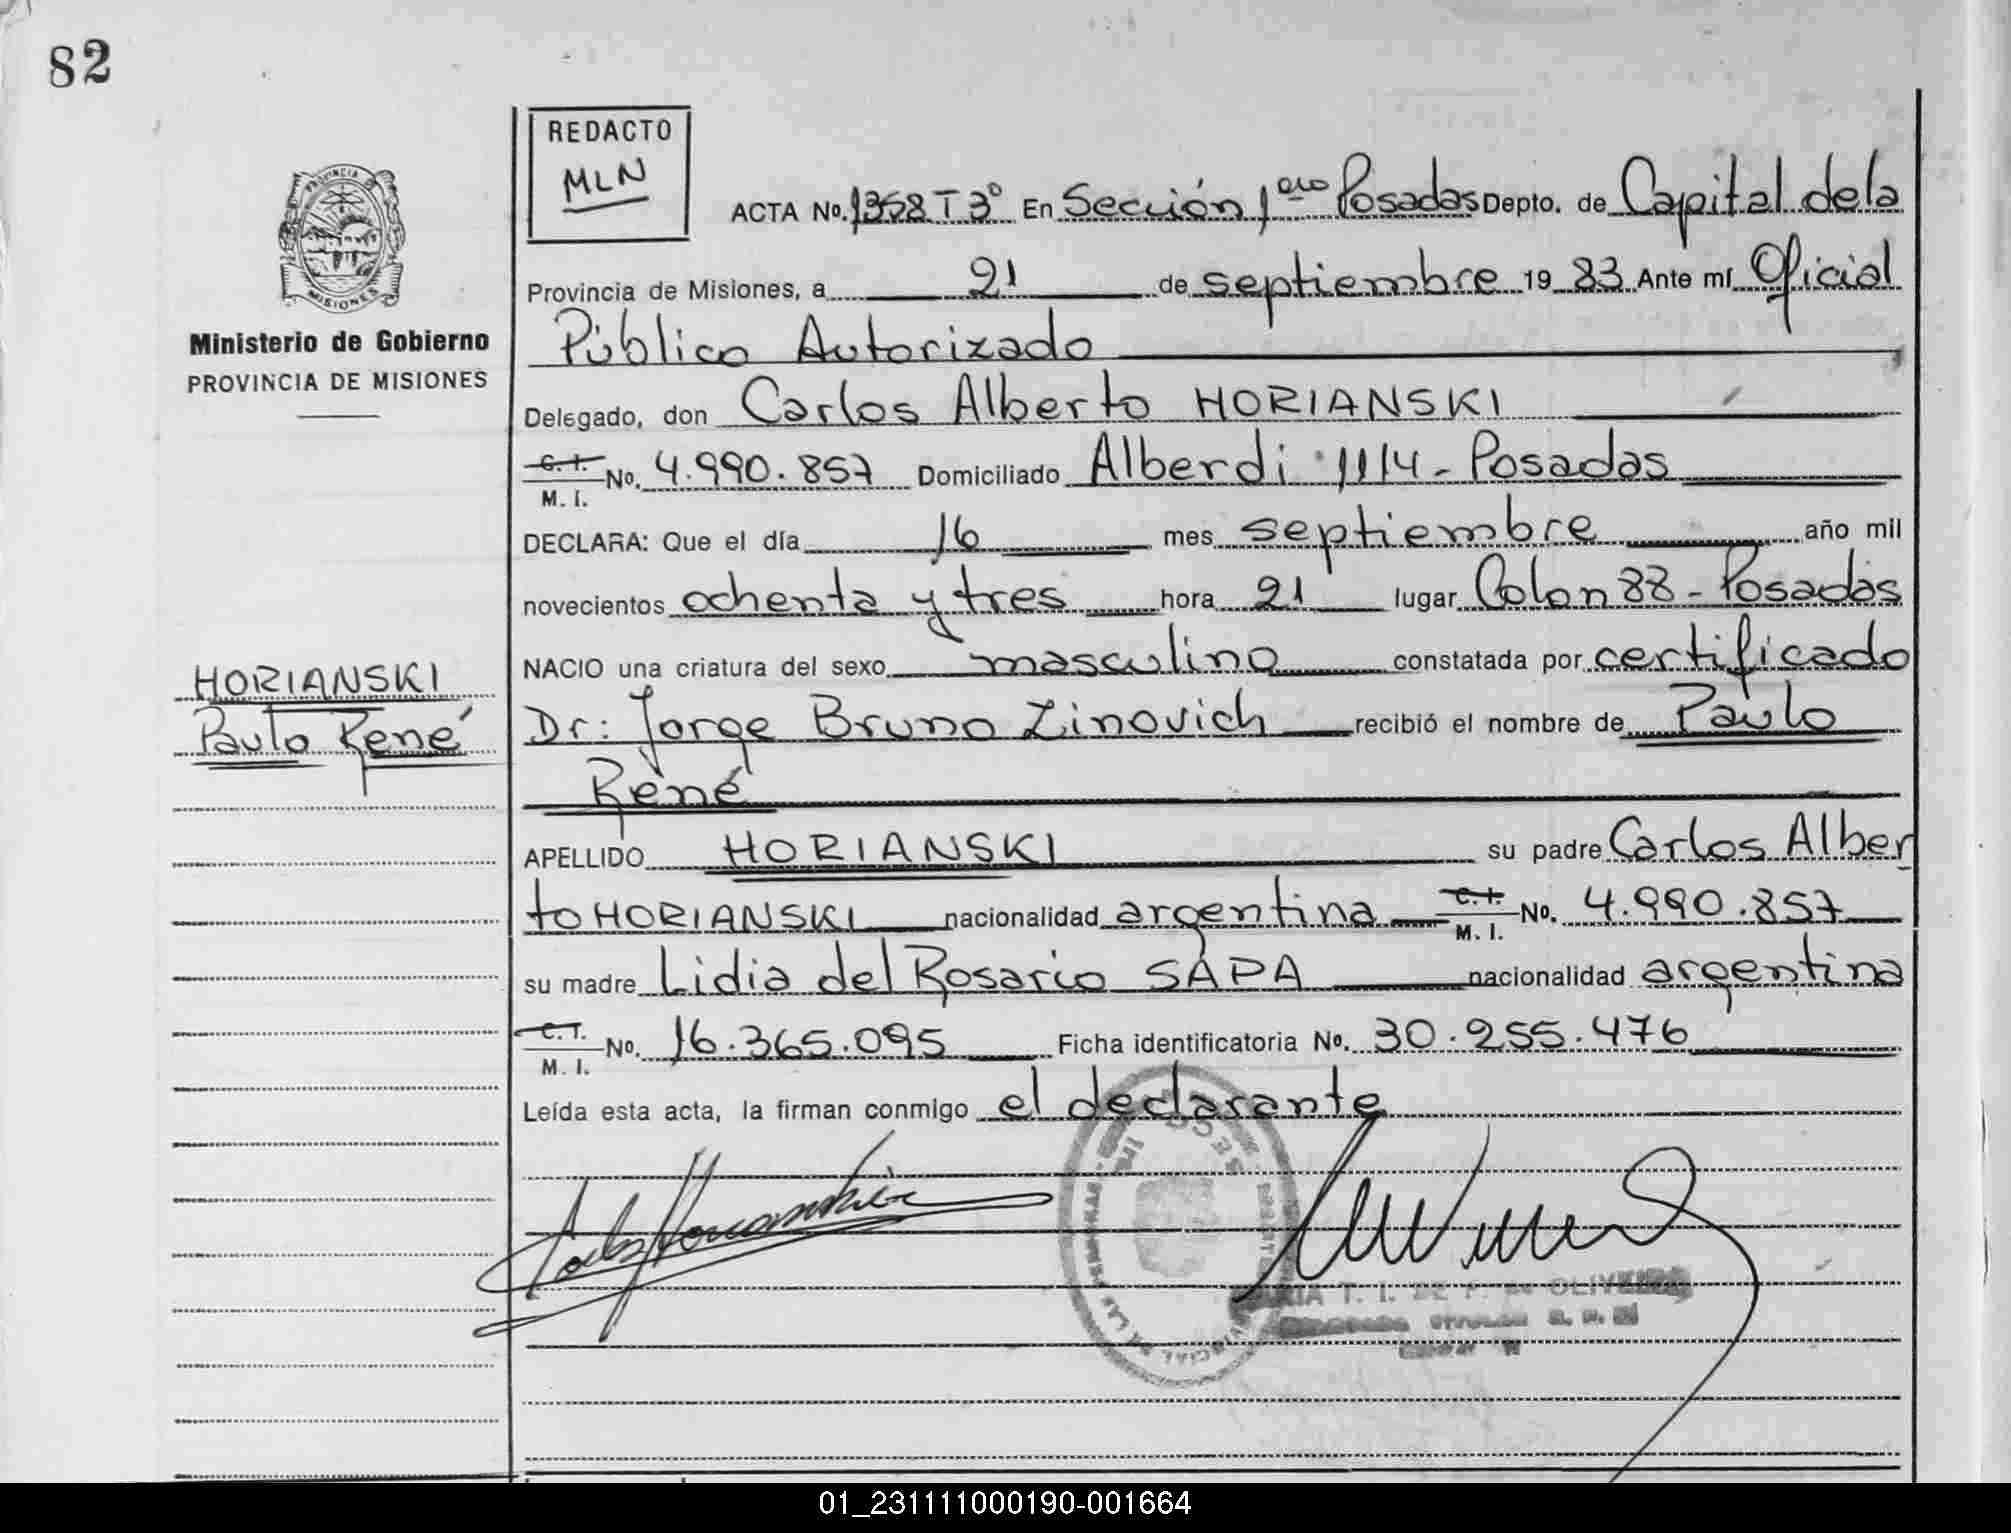 82
REDACTO
MLN
PROVINCIA
MISIONES
Ministerio de Gobierno
PROVINCIA DE MISIONES
HORIANSKI
Paulo René
ACTA No. 1358 T 3º En Sección 1era Posadas Depto. de Capital de la
Provincia de Misiones, a 21 de septiembre 19 83 Ante mí Oficial
Público Autorizado
Delegado, don Carlos Alberto HORIANSKI
C. I. M. I. No. 4.990.857 Domiciliado Alberdi 1114 - Posadas
DECLARA: Que el día 16 mes septiembre año mil
novecientos ochenta y tres hora 21 lugar Colon 88 - Posadas
NACIO una criatura del sexo masculino constatada por certificado
Dr: Jorge Bruno Zinovich recibió el nombre de Paulo
René
APELLIDO HORIANSKI su padre Carlos Alber
to HORIANSKI nacionalidad argentina C. I. M. I. No. 4.990.857
su madre Lidia del Rosario SAPA nacionalidad argentina
C. I. M. I. No. 16.365.095 Ficha identificatoria No. 30.255.476
Leída esta acta, la firman conmigo el declarante
T. I. DE OLIVEIRA
01_231111000190-001664